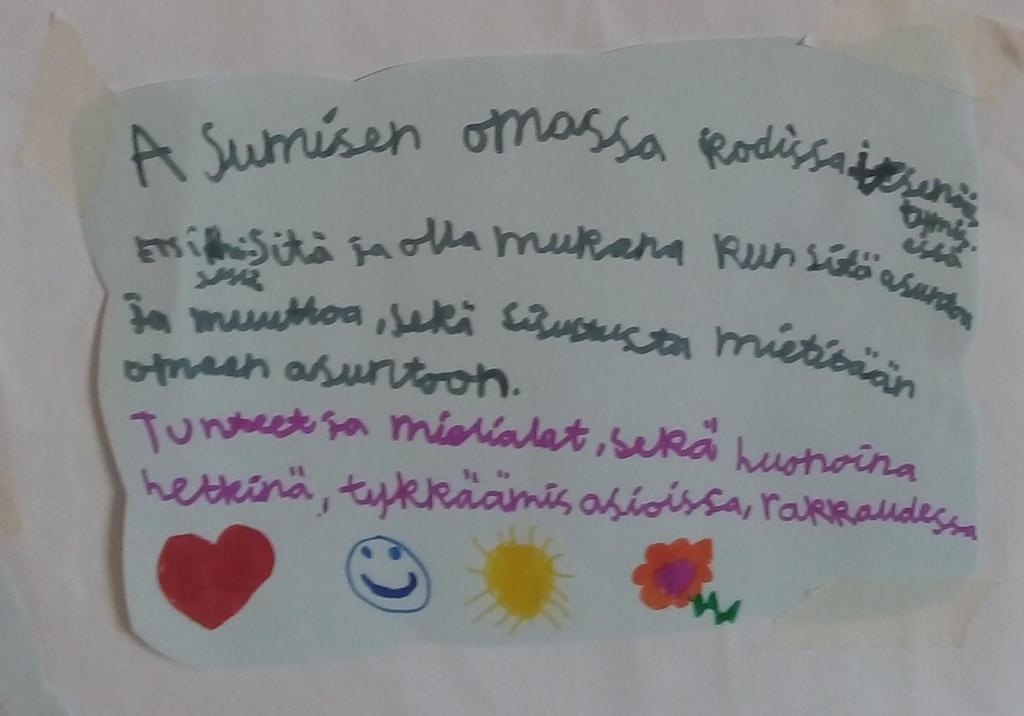 Asumisen omassa kodissa itsenäistymisessä
ensisijaisesti ja olla mukana kun sitä asuntoa
ja muuttoa, sekä sisustusta mietitään
omaan asuntoon.
Tunteet ja mielialat, sekä huonoina
hetkinä, tykkäämis asioissa, rakkaudessa